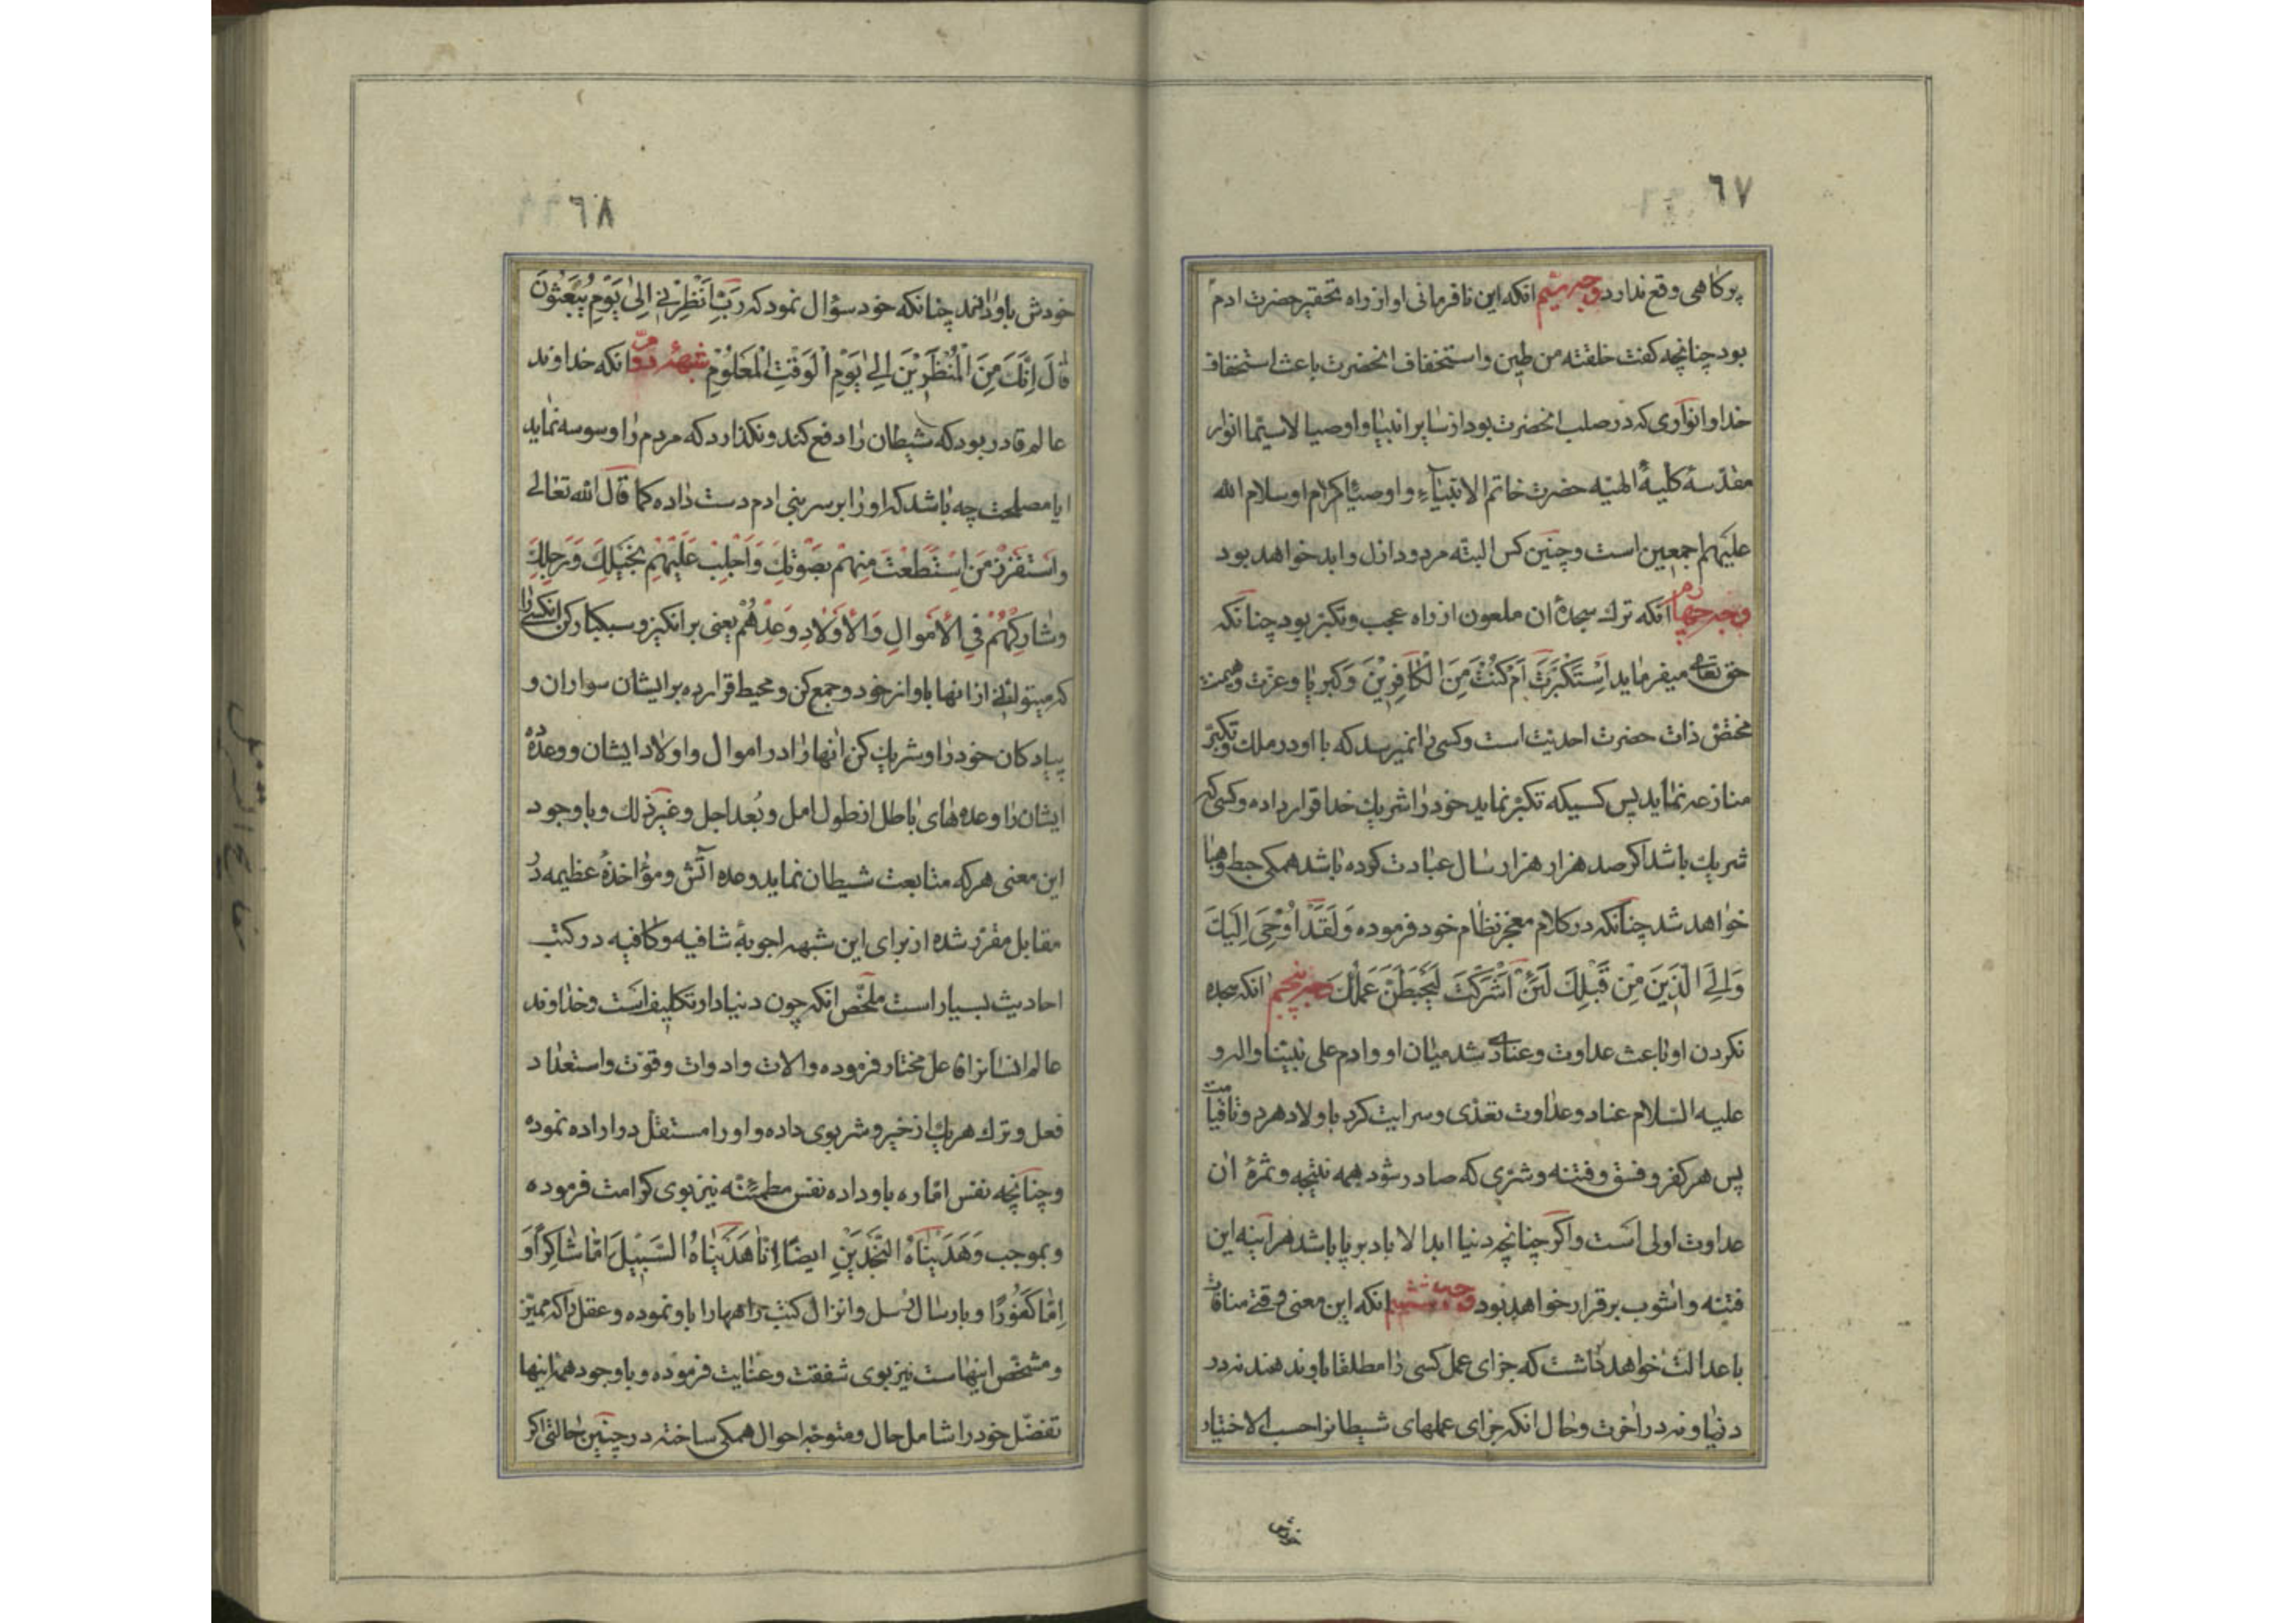 ٦٧
پر کاهی وقع ندارد وجه سیم انکه این نافرمانی او از راه تحقیر حضرت ادم
بود چنانچه کفت خلقته من طین واستخفاف انحضرت باعث استخفاف
خدا وانواری که در صلب انحضرت بود از سایر انبیا و اوصیا لاسیما انوار
مقدسهٔ کلیهٔ الهیّه حضرت خاتم الانبیاء و اوصیاء کرام او سلام الله
علیهم اجمعین است و چنین کس البته مردود ازل و ابد خواهد بود
وجه چهارم انکه ترک سجدهٔ ان ملعون از راه عجب و تکبّر بود چنانکه
حق تعالی میفرماید اَسْتَکْبَرْتَ اَمْ کُنْتَ مِنَ الْکافِرِیْنَ وَ کبریا و عزّت و
مختصّ ذات حضرت احدیّت است و کسی را نمیرسد که با او در ملک و تکبّر
منازعه نماید پس کسیکه تکبّر نماید خود را شریک خدا قرار داده و کسی که
شریک باشد اکر صد هزار هزار سال عبادت کرده باشد همکی حبط و هبا
خواهد شد چنانکه در کلام معجز نظام خود فرموده وَلَقَدْ اُوْحِیَ اِلَیْکَ
وَاِلَی الَّذِیْنَ مِنْ قَبْلِکَ لَئِنْ اَشْرَکْتَ لَیَحْبَطَنَّ عَمَلُکَ وجه پنجم انکه سجده
نکردن او باعث عداوت و عنادی شد میان او و ادم علی نبیّنا واله و
علیه السّلام عناد و عداوت تعدّی و سرایت کرد باولاد هر دو تا قیامت
پس هر کفر و فسق و فتنه و شرّی که صادر شود همه نتیجه و ثمرهٔ ان
عداوت اولی است و اکر چنانچه دنیا ابدا لاباد برپا باشد هراینه این
فتنه و اشوب برقرار خواهد بود وجه ششم انکه این معنی وقتی منافات
با عدالت خواهد داشت که جزای عمل کسی را مطلقا باو ندهند نه در
دنیا و نه در اخرت و حال انکه جزای عملهای شیطانرا حسب الاختیار
خودش
٦٨
خودش باو دادند چنانکه خود سؤال نمود که رَبِّ اَنْظِرْنی اِلی یَوْمِ یُبْعَثُوْنَ
قالَ اِنَّکَ مِنَ الْمُنْظَرِیْنَ اِلی یَوْمِ الْوَقْتِ الْمَعْلُوْمِ شبههٔ دوّم انکه خداوند
عالم قادر بود که شیطان را دفع کند و نکذارد که مردم را وسوسه نماید
ایا مصلحت چه باشد که او را بر سر بنی ادم دست داده کما قال الله تعالی
وَاسْتَفْزِزْ مَنِ اسْتَطَعْتَ مِنْهُمْ بِصَوْتِکَ وَاَجْلِبْ عَلَیْهِمْ بِخَیْلِکَ وَرَجِلِکَ
وَشارِکْهُمْ فِی الْاَمْوالِ وَالْاَوْلادِ وَعِدْهُمْ یعنی برانکیز و سبکبار کن انکسی را
که میتوانی از انها باواز خود و جمع کن و محیط قرار ده بر ایشان سواران و
پیادکان خود را و شریک کن انها را در اموال و اولاد ایشان و وعده ده
ایشان را وعده های باطل از طول امل و بُعد اجل و غیر ذلک و با وجود
این معنی هر که متابعت شیطان نماید وعده اتش و مؤاخذهٔ عظیمه در
مقابل مقرّر شده از برای این شبهه اجوبهٔ شافیه و کافیه در کتب
احادیث بسیار است ملخّص انکه چون دنیا دار تکلیف است و خداوند
عالم انسانرا فاعل مختار فرموده و الات و ادوات و قوّت و استعداد
فعل و ترک هر یک از خیر و شر بوی داده و او را مستقل در اراده نموده
و چنانچه نفس امّاره باو داده نفس مطمئنّه نیز بوی کرامت فرموده
و بموجب وَهَدَیْناهُ النَّجْدَیْنِ ایضًا اِنّا هَدَیْناهُ السَّبِیْلَ اِمّا شاکِرًا وَ
اِمّا کَفُوْرًا و بارسال رسل و انزال کتب راهها را باو نموده و عقل را که ممیّز
و مشخّص اینهاست نیز بوی شفقت و عنایت فرموده و با وجود همه اینها
تفضّل خود را شامل حال و متوجّه احوال همکی ساخته در چنین حالتی اکر